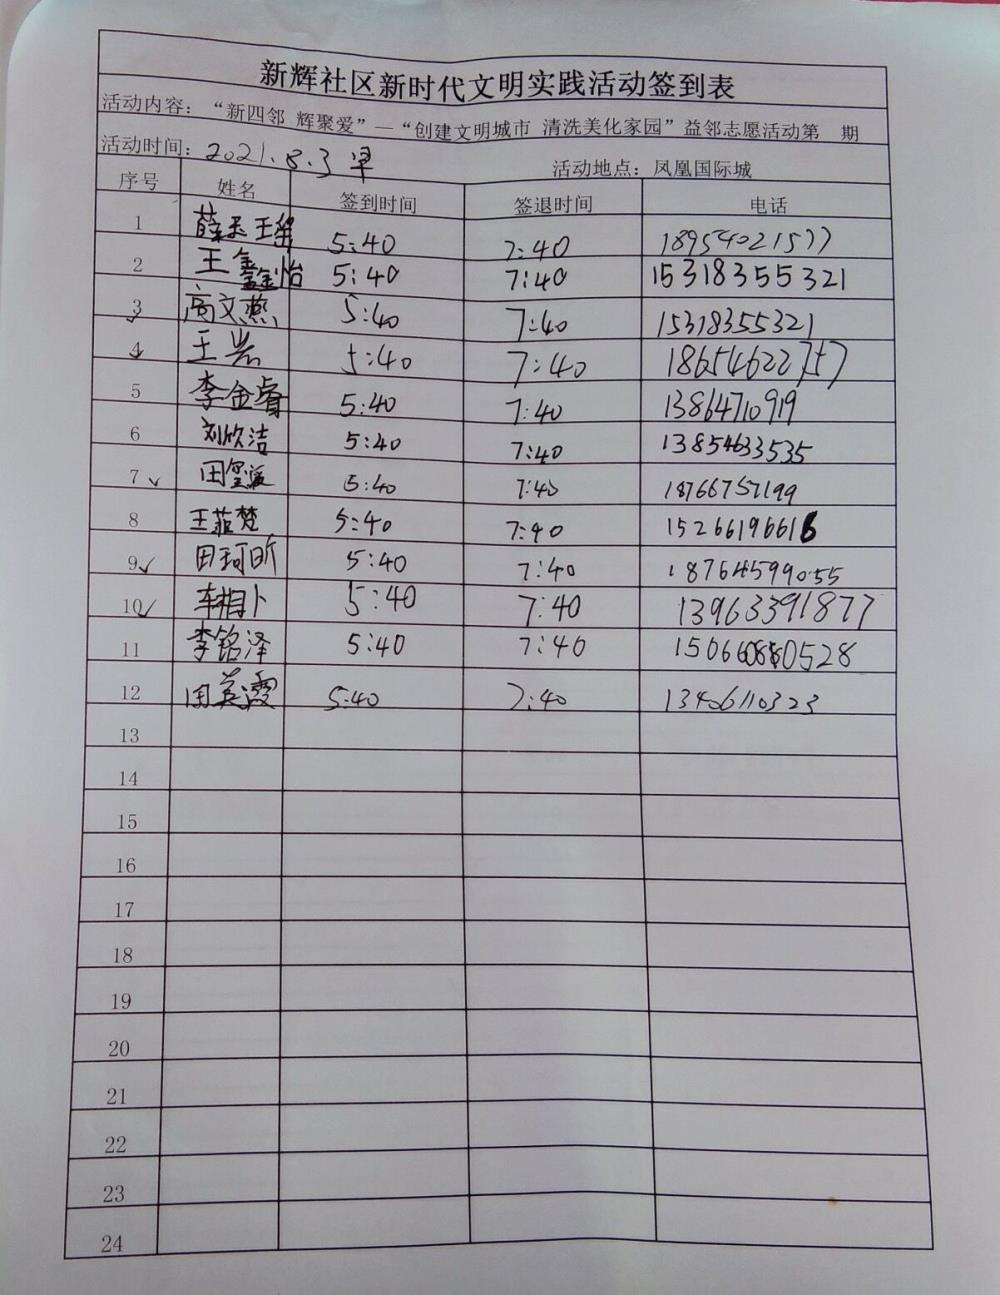 新辉社区新时代文明实践活动签到表
活动内容：“新四邻 辉聚爱”—“创建文明城市 清洗美化家园”益邻志愿活动第 期
活动时间：2021.8.3 早 活动地点：凤凰国际城
序号 姓名 签到时间 签退时间 电话
1 5:40 7:40 18954021577
2 王鑫怡 5:40 7:40 15318355321
3 高文燕 5:40 7:40 15318355321
4 王岩 5:40 7:40 18654622757
5 李金睿 5:40 7:40 13864710919
6 刘欣洁 5:40 7:40 13854633535
7 田 5:40 7:40 18766757199
8 王菲梵 5:40 7:40 15266196616
9 田珂昕 5:40 7:40 18764599055
10 5:40 7:40 13963391877
11 李铭泽 5:40 7:40
12 田英霞 5:40 7:40 13406110323
13
14
15
16
17
18
19
20
21
22
23
24